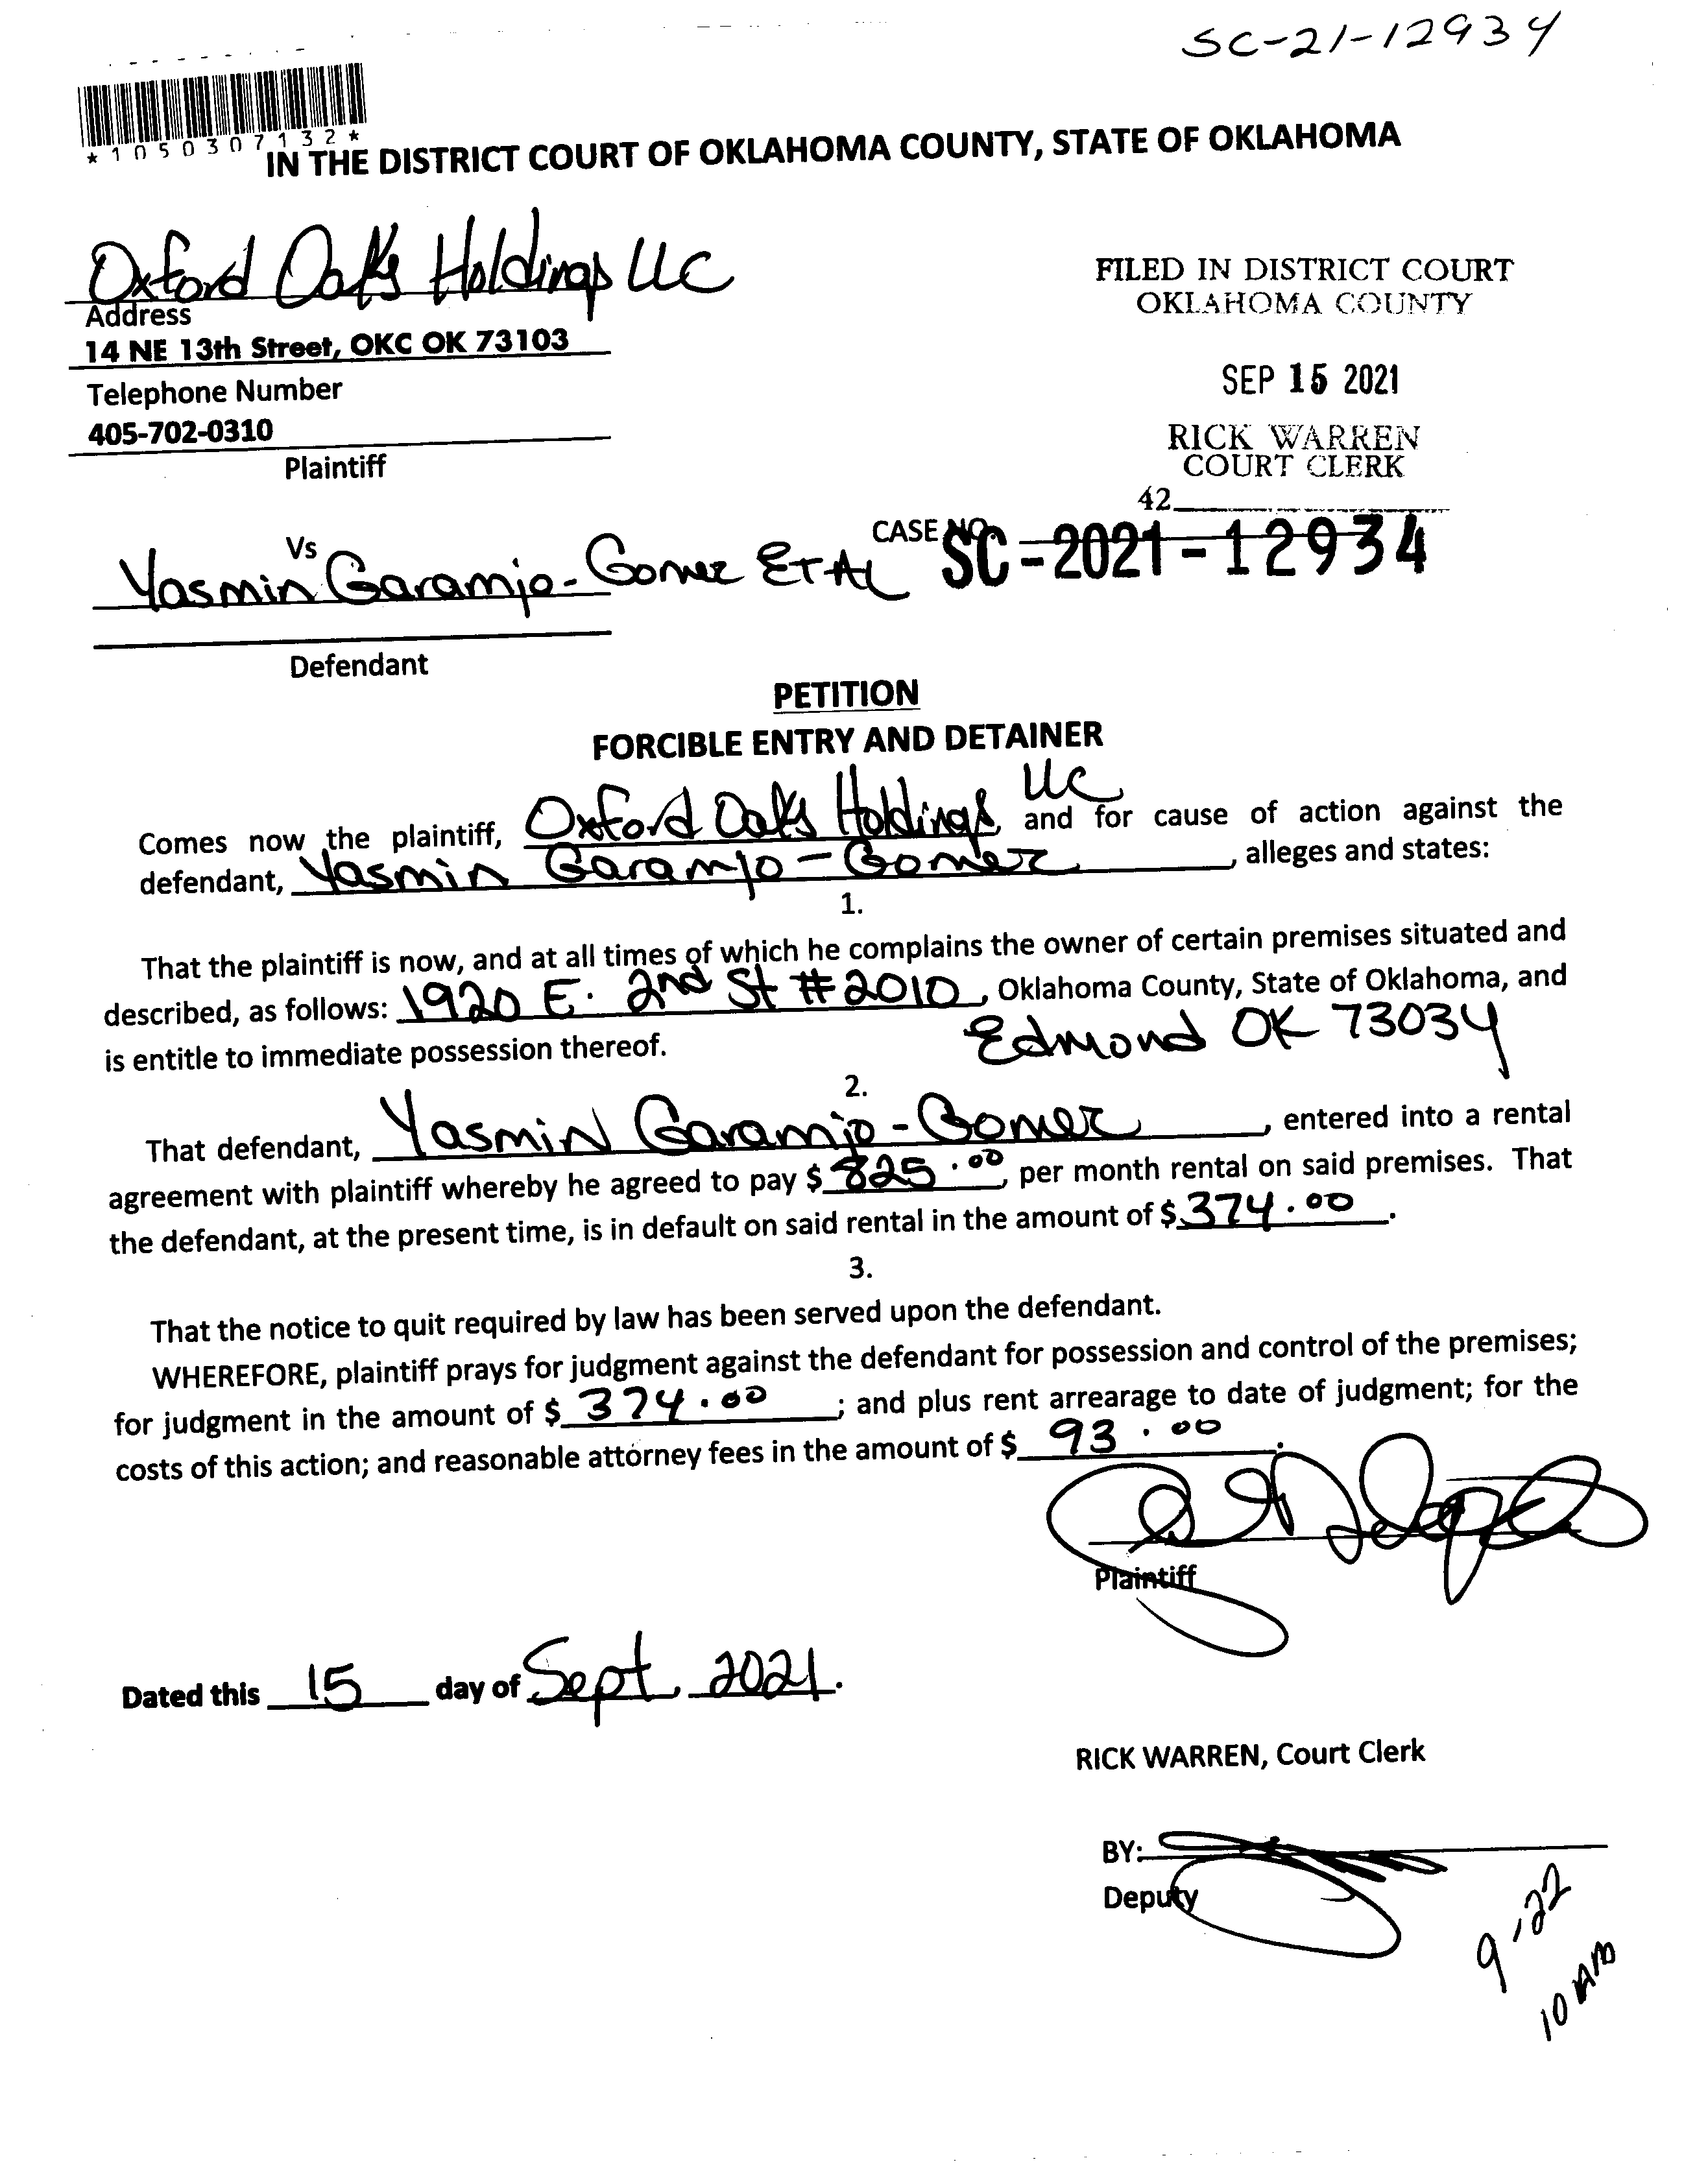 SC-21-12934
*1050307132*
IN THE DISTRICT COURT OF OKLAHOMA COUNTY, STATE OF OKLAHOMA
Oxford Oaks Holdings LLC
Address
14 NE 13th Street, OKC OK 73103
Telephone Number
405-702-0310
Plaintiff
FILED IN DISTRICT COURT
OKLAHOMA COUNTY
SEP 15 2021
RICK WARREN
COURT CLERK
42
Vs
CASE NO. SC-2021-12934
Yasmin Garamjo-Gomez ET AL
Defendant
PETITION
FORCIBLE ENTRY AND DETAINER
Comes now the plaintiff, Oxford Oaks Holdings LLC and for cause of action against the
defendant, Yasmin Garamjo-Gomez, alleges and states:
1.
That the plaintiff is now, and at all times of which he complains the owner of certain premises situated and
described, as follows: 1920 E. 2nd St #2010, Oklahoma County, State of Oklahoma, and
Edmond OK 73034
is entitle to immediate possession thereof.
2.
That defendant, Yasmin Garamjo-Gomez, entered into a rental
agreement with plaintiff whereby he agreed to pay $ 825.00, per month rental on said premises. That
the defendant, at the present time, is in default on said rental in the amount of $ 374.00.
3.
That the notice to quit required by law has been served upon the defendant.
WHEREFORE, plaintiff prays for judgment against the defendant for possession and control of the premises;
for judgment in the amount of $ 374.00; and plus rent arrearage to date of judgment; for the
costs of this action; and reasonable attorney fees in the amount of $ 93.00.
Plaintiff
Dated this 15 day of Sept, 2021.
RICK WARREN, Court Clerk
BY:
Deputy
9-22
10 AM